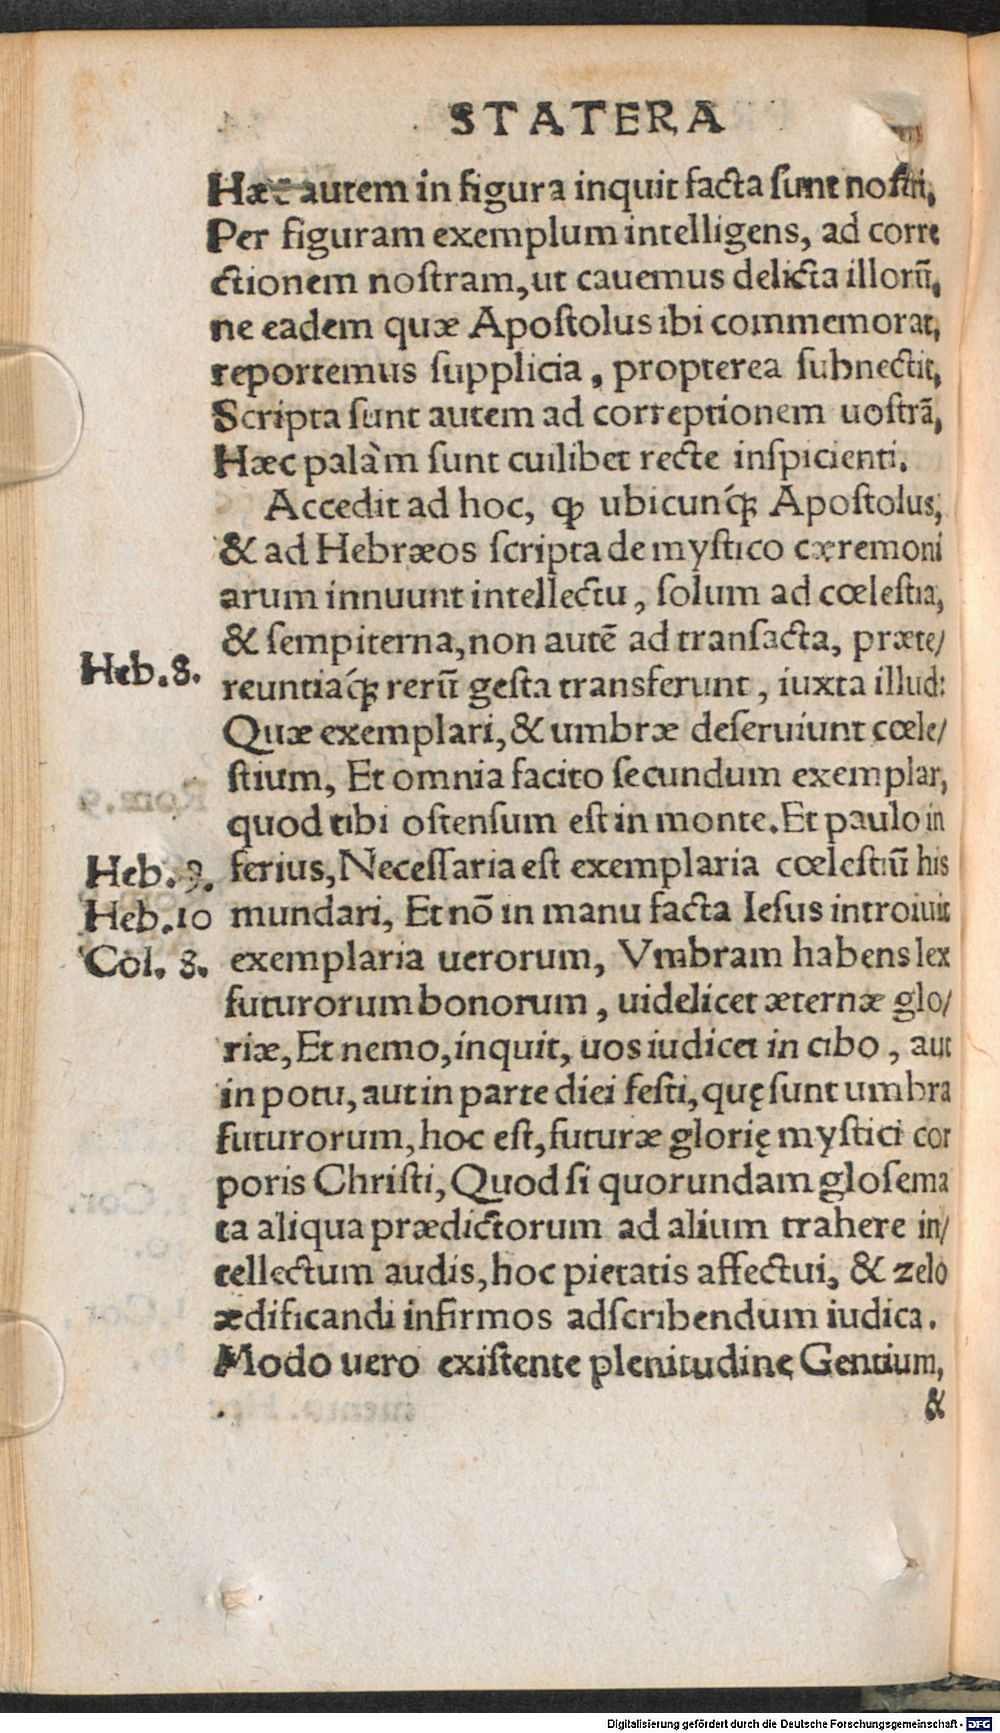 STATERA
Hæc autem in figura inquit facta sunt nostri,
Per figuram exemplum intelligens, ad corre
ctionem nostram, ut cauemus delicta illorū,
ne eadem quæ Apostolus ibi commemorat,
reportemus supplicia, propterea subnectit,
Scripta sunt autem ad correptionem uostrā,
Hæc palàm sunt cuilibet recte inspicienti.
Accedit ad hoc, ꝙ ubicunq́; Apostolus,
& ad Hebræos scripta de mystico cæremoni
arum innuunt intellectu, solum ad cœlestia,
& sempiterna, non autē ad transacta, præte/
Heb. 8.
reuntiaq́; rerū gesta transferunt, iuxta illud:
Quæ exemplari, & umbræ deseruiunt cœle/
stium, Et omnia facito secundum exemplar,
quod tibi ostensum est in monte. Et paulo in
Heb. 9.
ferius, Necessaria est exemplaria cœlestiū his
Heb. 10
mundari, Et nō in manu facta Iesus introiuit
Col. 8.
exemplaria uerorum, Vmbram habens lex
futurorum bonorum, uidelicet æternæ glo/
riæ, Et nemo, inquit, uos iudicet in cibo, aut
in potu, aut in parte diei festi, quę sunt umbra
futurorum, hoc est, futuræ glorię mystici cor
poris Christi, Quod si quorundam glosema
ta aliqua prædictorum ad alium trahere in/
tellectum audis, hoc pietatis affectui, & zelo
ædificandi infirmos adscribendum iudica.
Modo uero existente plenitudine Gentium,
&
Digitalisierung gefördert durch die Deutsche Forschungsgemeinschaft - DFG